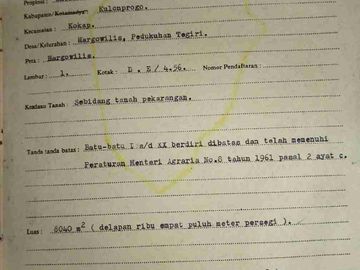 Propinsi :
Kabupaten/Kotamadya : Kulonprogo.
Kecamatan : Kokap.
Desa/Kelurahan : Hargowilis, Pedukuhan Tegiri.
Peta : Hargowilis.
Lembar : 1. Kotak : D . E / 4.56. Nomor Pendaftaran :
Keadaan Tanah : Sebidang tanah pekarangan.
Tanda tanda batas : Batu-batu I s/d XX berdiri dibatas dan telah memenuhi
Peraturan Menteri Agraria No.8 tahun 1961 pasal 2 ayat c.
Luas : 8040 m² ( delapan ribu empat puluh meter persegi ).